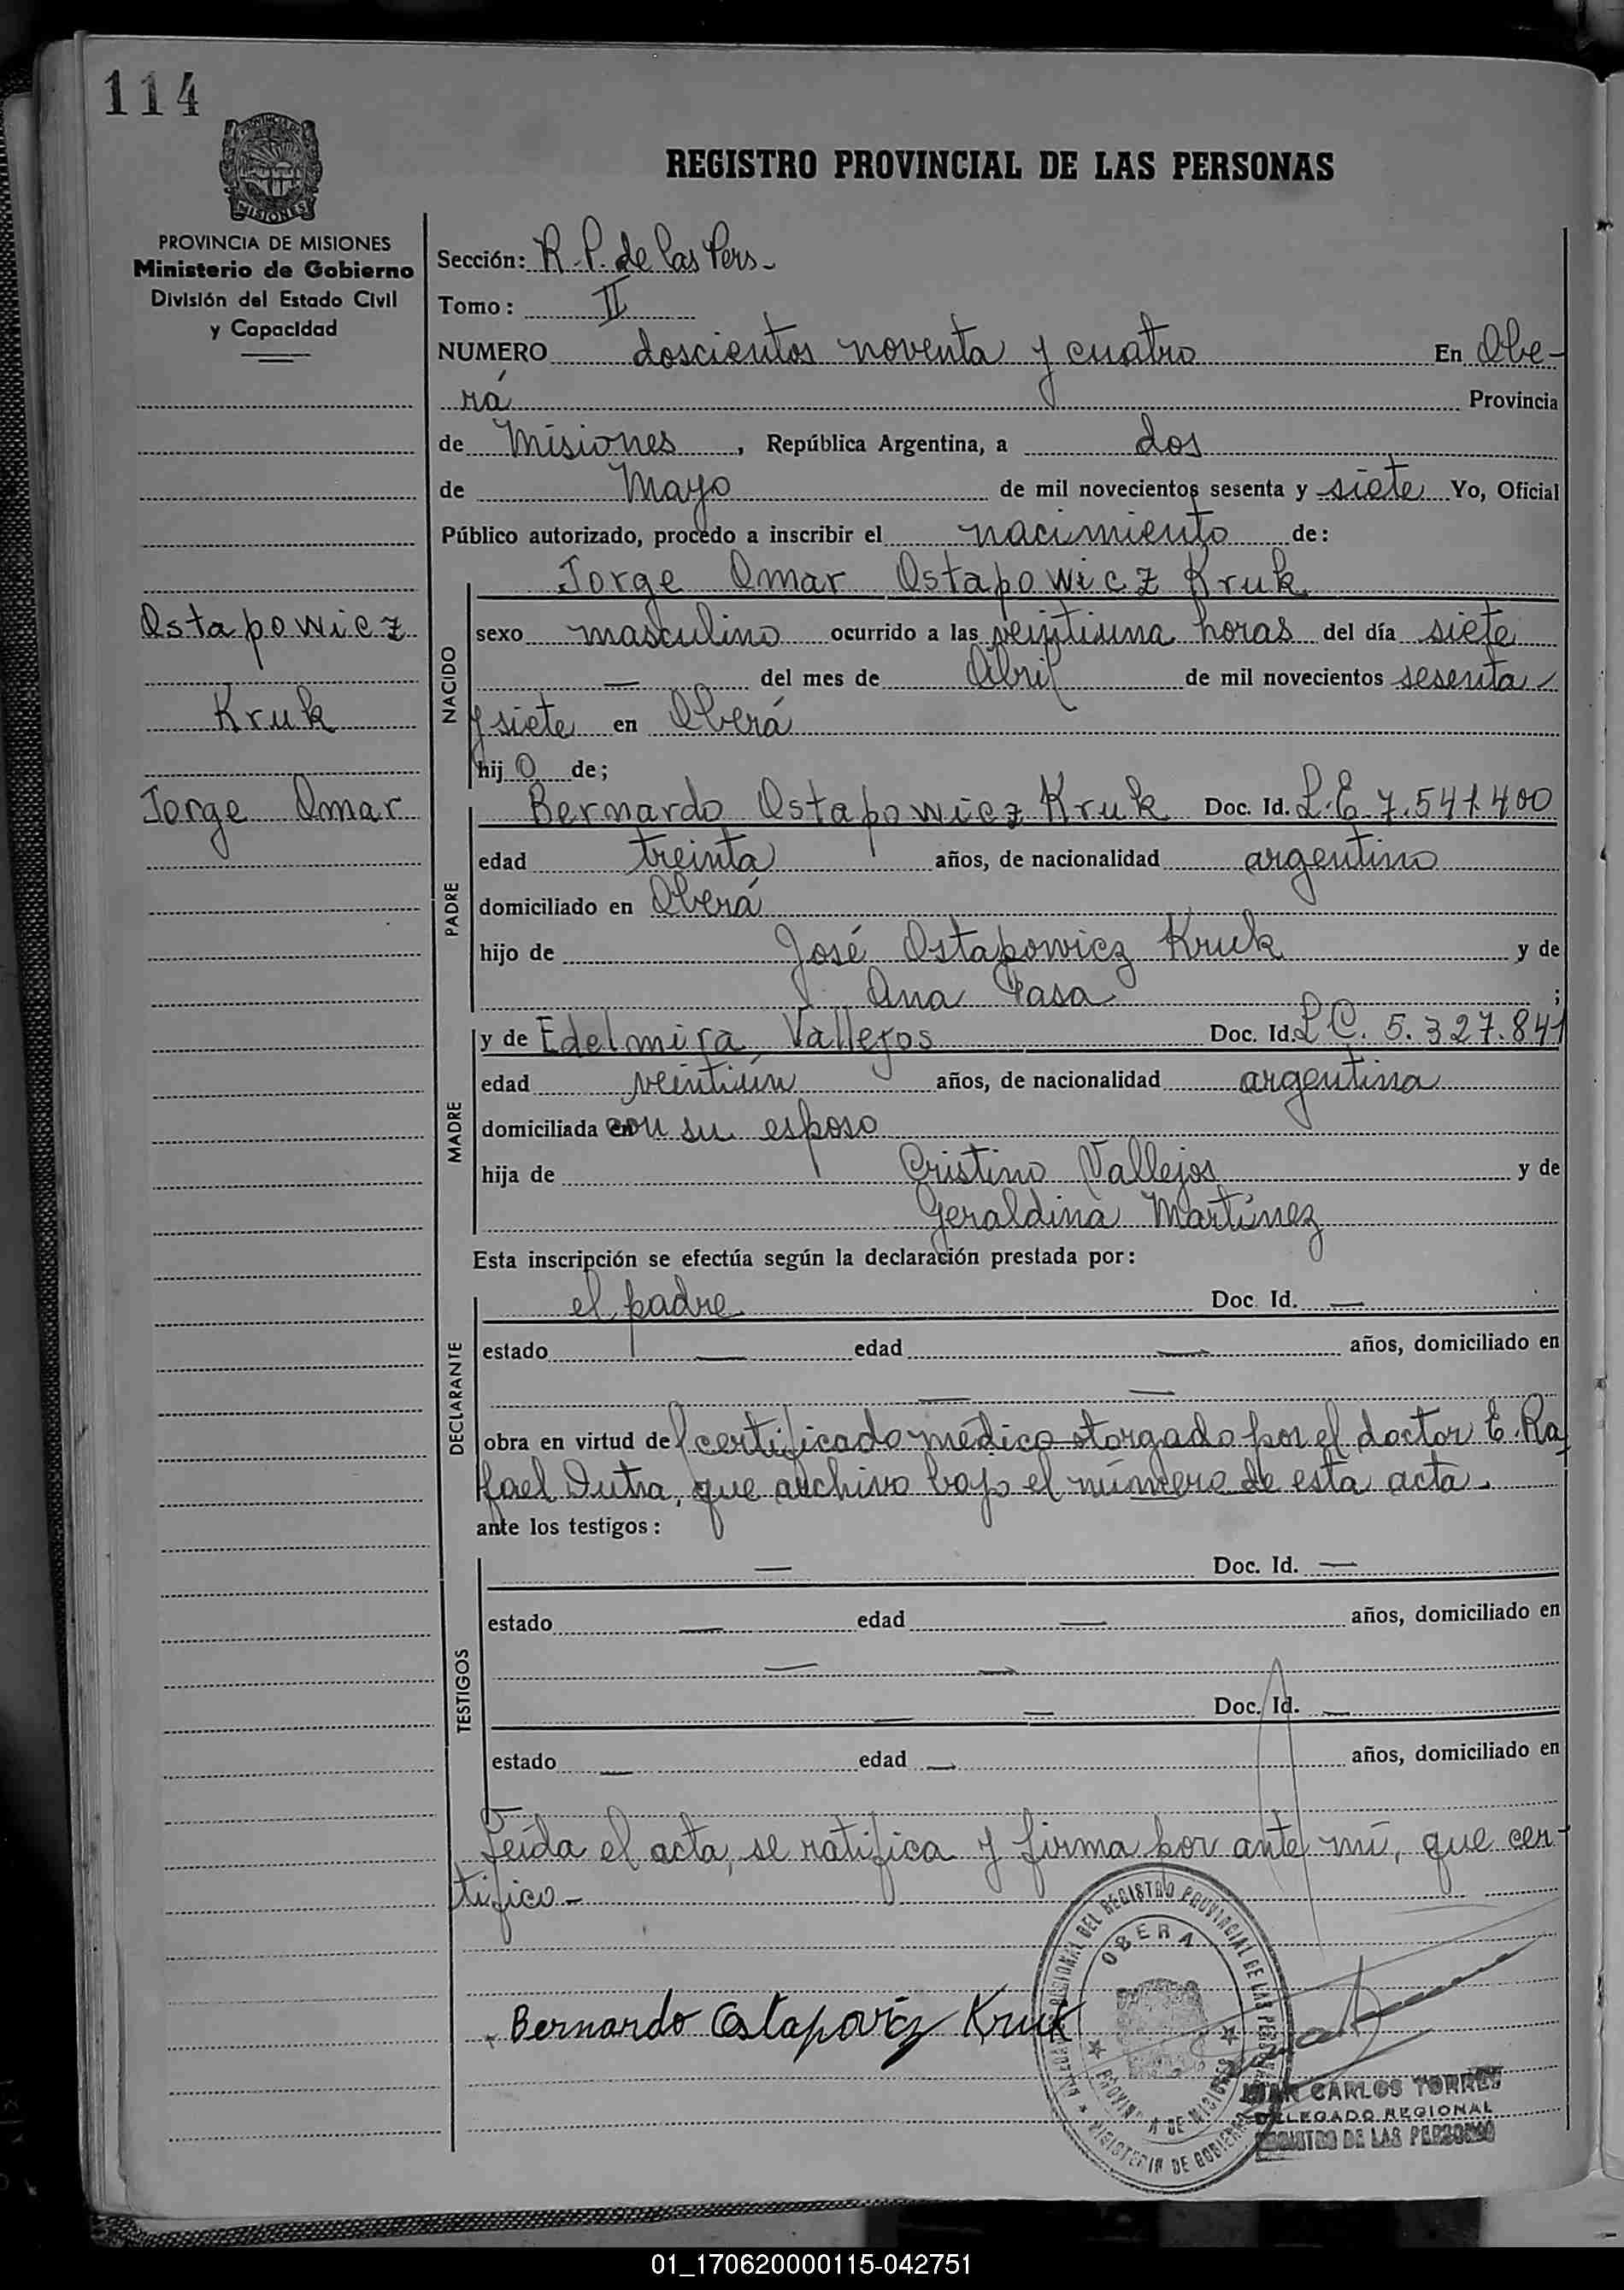 114
PROVINCIA DE
MISIONES
REGISTRO PROVINCIAL DE LAS PERSONAS
PROVINCIA DE MISIONES
Ministerio de Gobierno
División del Estado Civil
y Capacidad
Ostapowicz
Kruk
Jorge Omar
Sección: R. P. de las Pers-
Tomo: II
NUMERO doscientos noventa y cuatro En Obe-
rá Provincia
de Misiones, República Argentina, a dos
de Mayo de mil novecientos sesenta y siete Yo, Oficial
Público autorizado, procedo a inscribir el nacimiento de:
Jorge Omar Ostapowicz Kruk
NACIDO
sexo masculino ocurrido a las veintiuna horas del día siete
— del mes de Abril de mil novecientos sesenta
y siete en Oberá
hijo de;
PADRE
Bernardo Ostapowicz Kruk Doc. Id. L.E. 7.541.400
edad treinta años, de nacionalidad argentino
domiciliado en Oberá
hijo de José Ostapowicz Kruk y de
Ana Pasa ;
MADRE
y de Edelmira Vallejos Doc. Id. L C. 5.327.841
edad veintiún años, de nacionalidad argentina
domiciliada con su esposo
hija de Cristino Vallejos y de
Geraldina Martínez
Esta inscripción se efectúa según la declaración prestada por:
DECLARANTE
el padre Doc. Id. —
estado — edad — años, domiciliado en
— —
obra en virtud del certificado médico otorgado por el doctor E. Ra
fael Dutra, que archivo bajo el número de esta acta.
ante los testigos:
TESTIGOS
— Doc. Id. —
estado — edad — años, domiciliado en
— —
— — Doc. Id. —
estado — edad — años, domiciliado en
Leída el acta, se ratifica y firma por ante mí, que cer-
tifico-
Bernardo Ostapovicz Kruk
REGIONAL DEL REGISTRO PROVINCIAL DE LAS
OBERA
PROVINCIA DE MISIONES
MINISTERIO DE GOBIERNO
JUAN CARLOS TORRES
DELEGADO REGIONAL
REGISTRO DE LAS PERSONAS
01_170620000115-042751